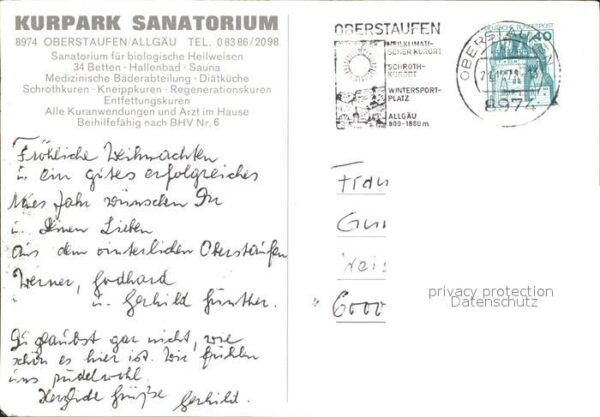 KURPARK SANATORIUM
8974 OBERSTAUFEN/ALLGÄU TEL. 0 83 86/20 98
Sanatorium für biologische Heilweisen
34 Betten · Hallenbad · Sauna
Medizinische Bäderabteilung · Diätküche
Schrothkuren · Kneippkuren · Regenerationskuren
Entfettungskuren
Alle Kuranwendungen und Arzt im Hause
Beihilfefähig nach BHV Nr. 6
Fröhliche Weihnachten
u. ein gutes erfolgreiches
Neues Jahr wünschen Dir
u. Deinen Lieben
aus dem winterlichen Oberstaufen
Werner, Godhard
u. Gerhild Günther.
Du glaubst gar nicht, wie
schön es hier ist. Wir fühlen
uns pudelwohl.
Herzliche Grüße Gerhild.
OBERSTAUFEN
HEILKLIMATI-
SCHER KURORT
SCHROTH-
KURORT
WINTERSPORT-
PLATZ
ALLGÄU
800-1800 m
OBERSTAUFEN
8974
DEUTSCHE BUNDESPOST
40
Frau
6000
privacy protection
Datenschutz